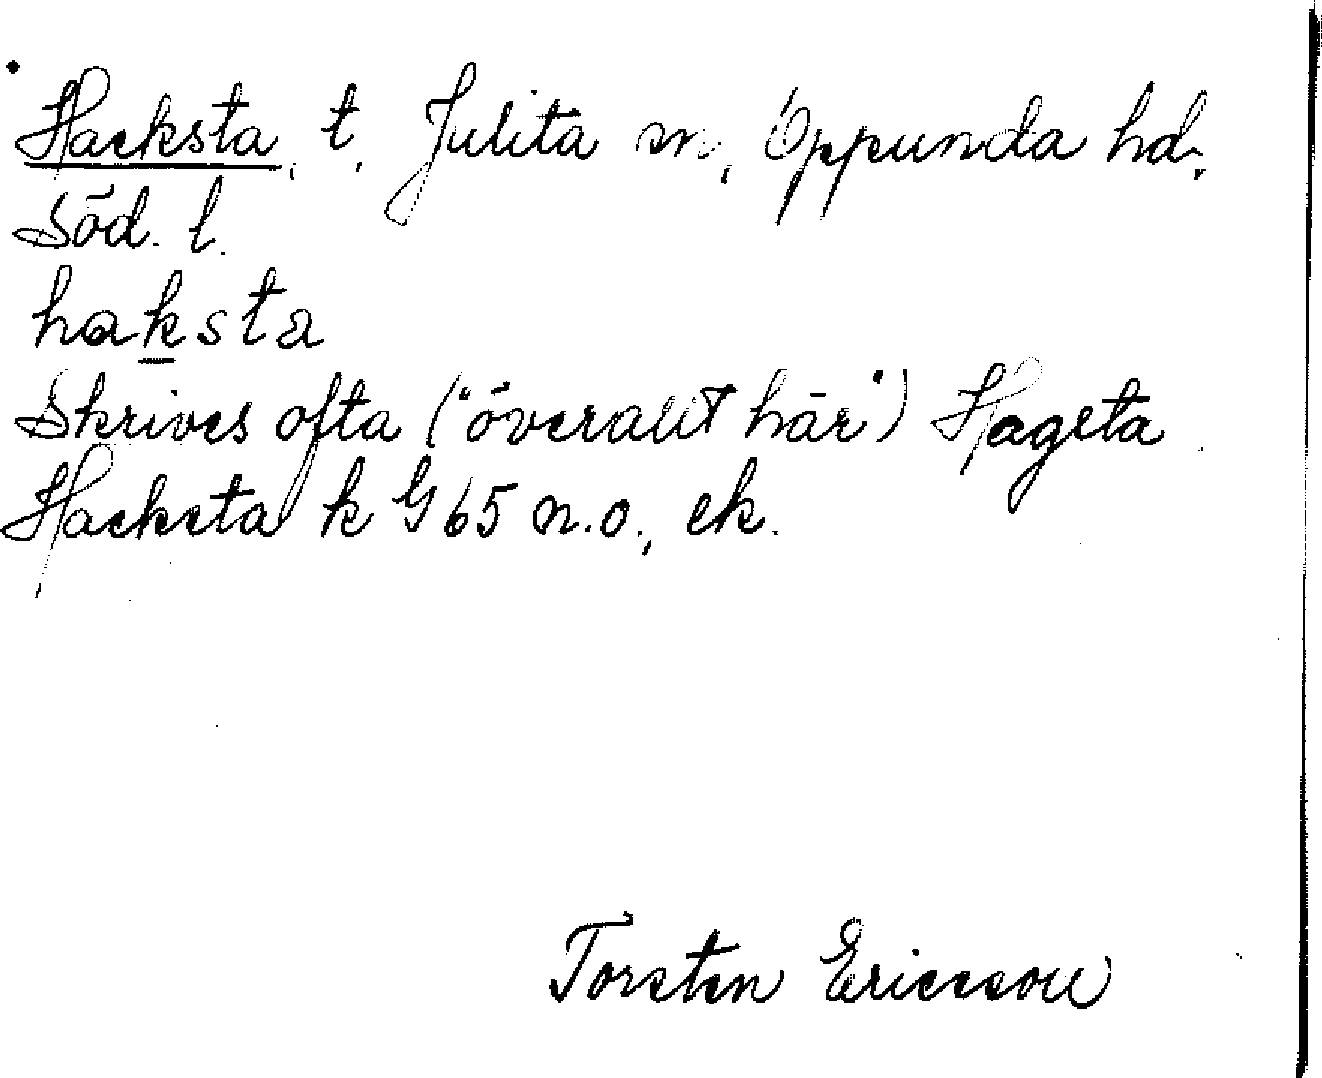 Hacksta, t, Julita sn, Oppunda hd,
Söd. l.
haksta
Skrives ofta ("överallt här") Hagsta
Hacksta k G 65 n.o., ek.
Torsten Ericsson